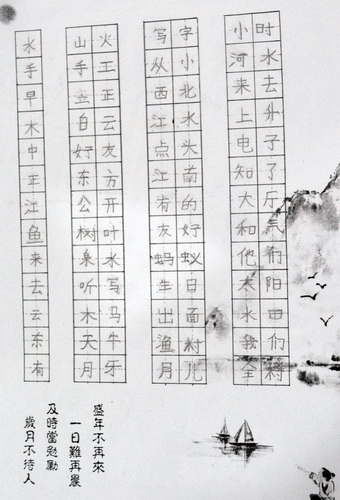 水
手
早
木
中
年
江
鱼
来
去
云
东
有
山火
手王
立正
白云
好友
东方
公开
树叶
泉水
听写
木马
天牛
月牙
写字
从小
西北
江水
点头
江南
有的
友好
蚂蚁
生日
出面
渔村
月儿
小时
河水
来去
上外
电子
知了
大厅
和气
他们
太阳
水田
我们
全村
盛年不再來
一日難再晨
及時當勉勵
歲月不待人